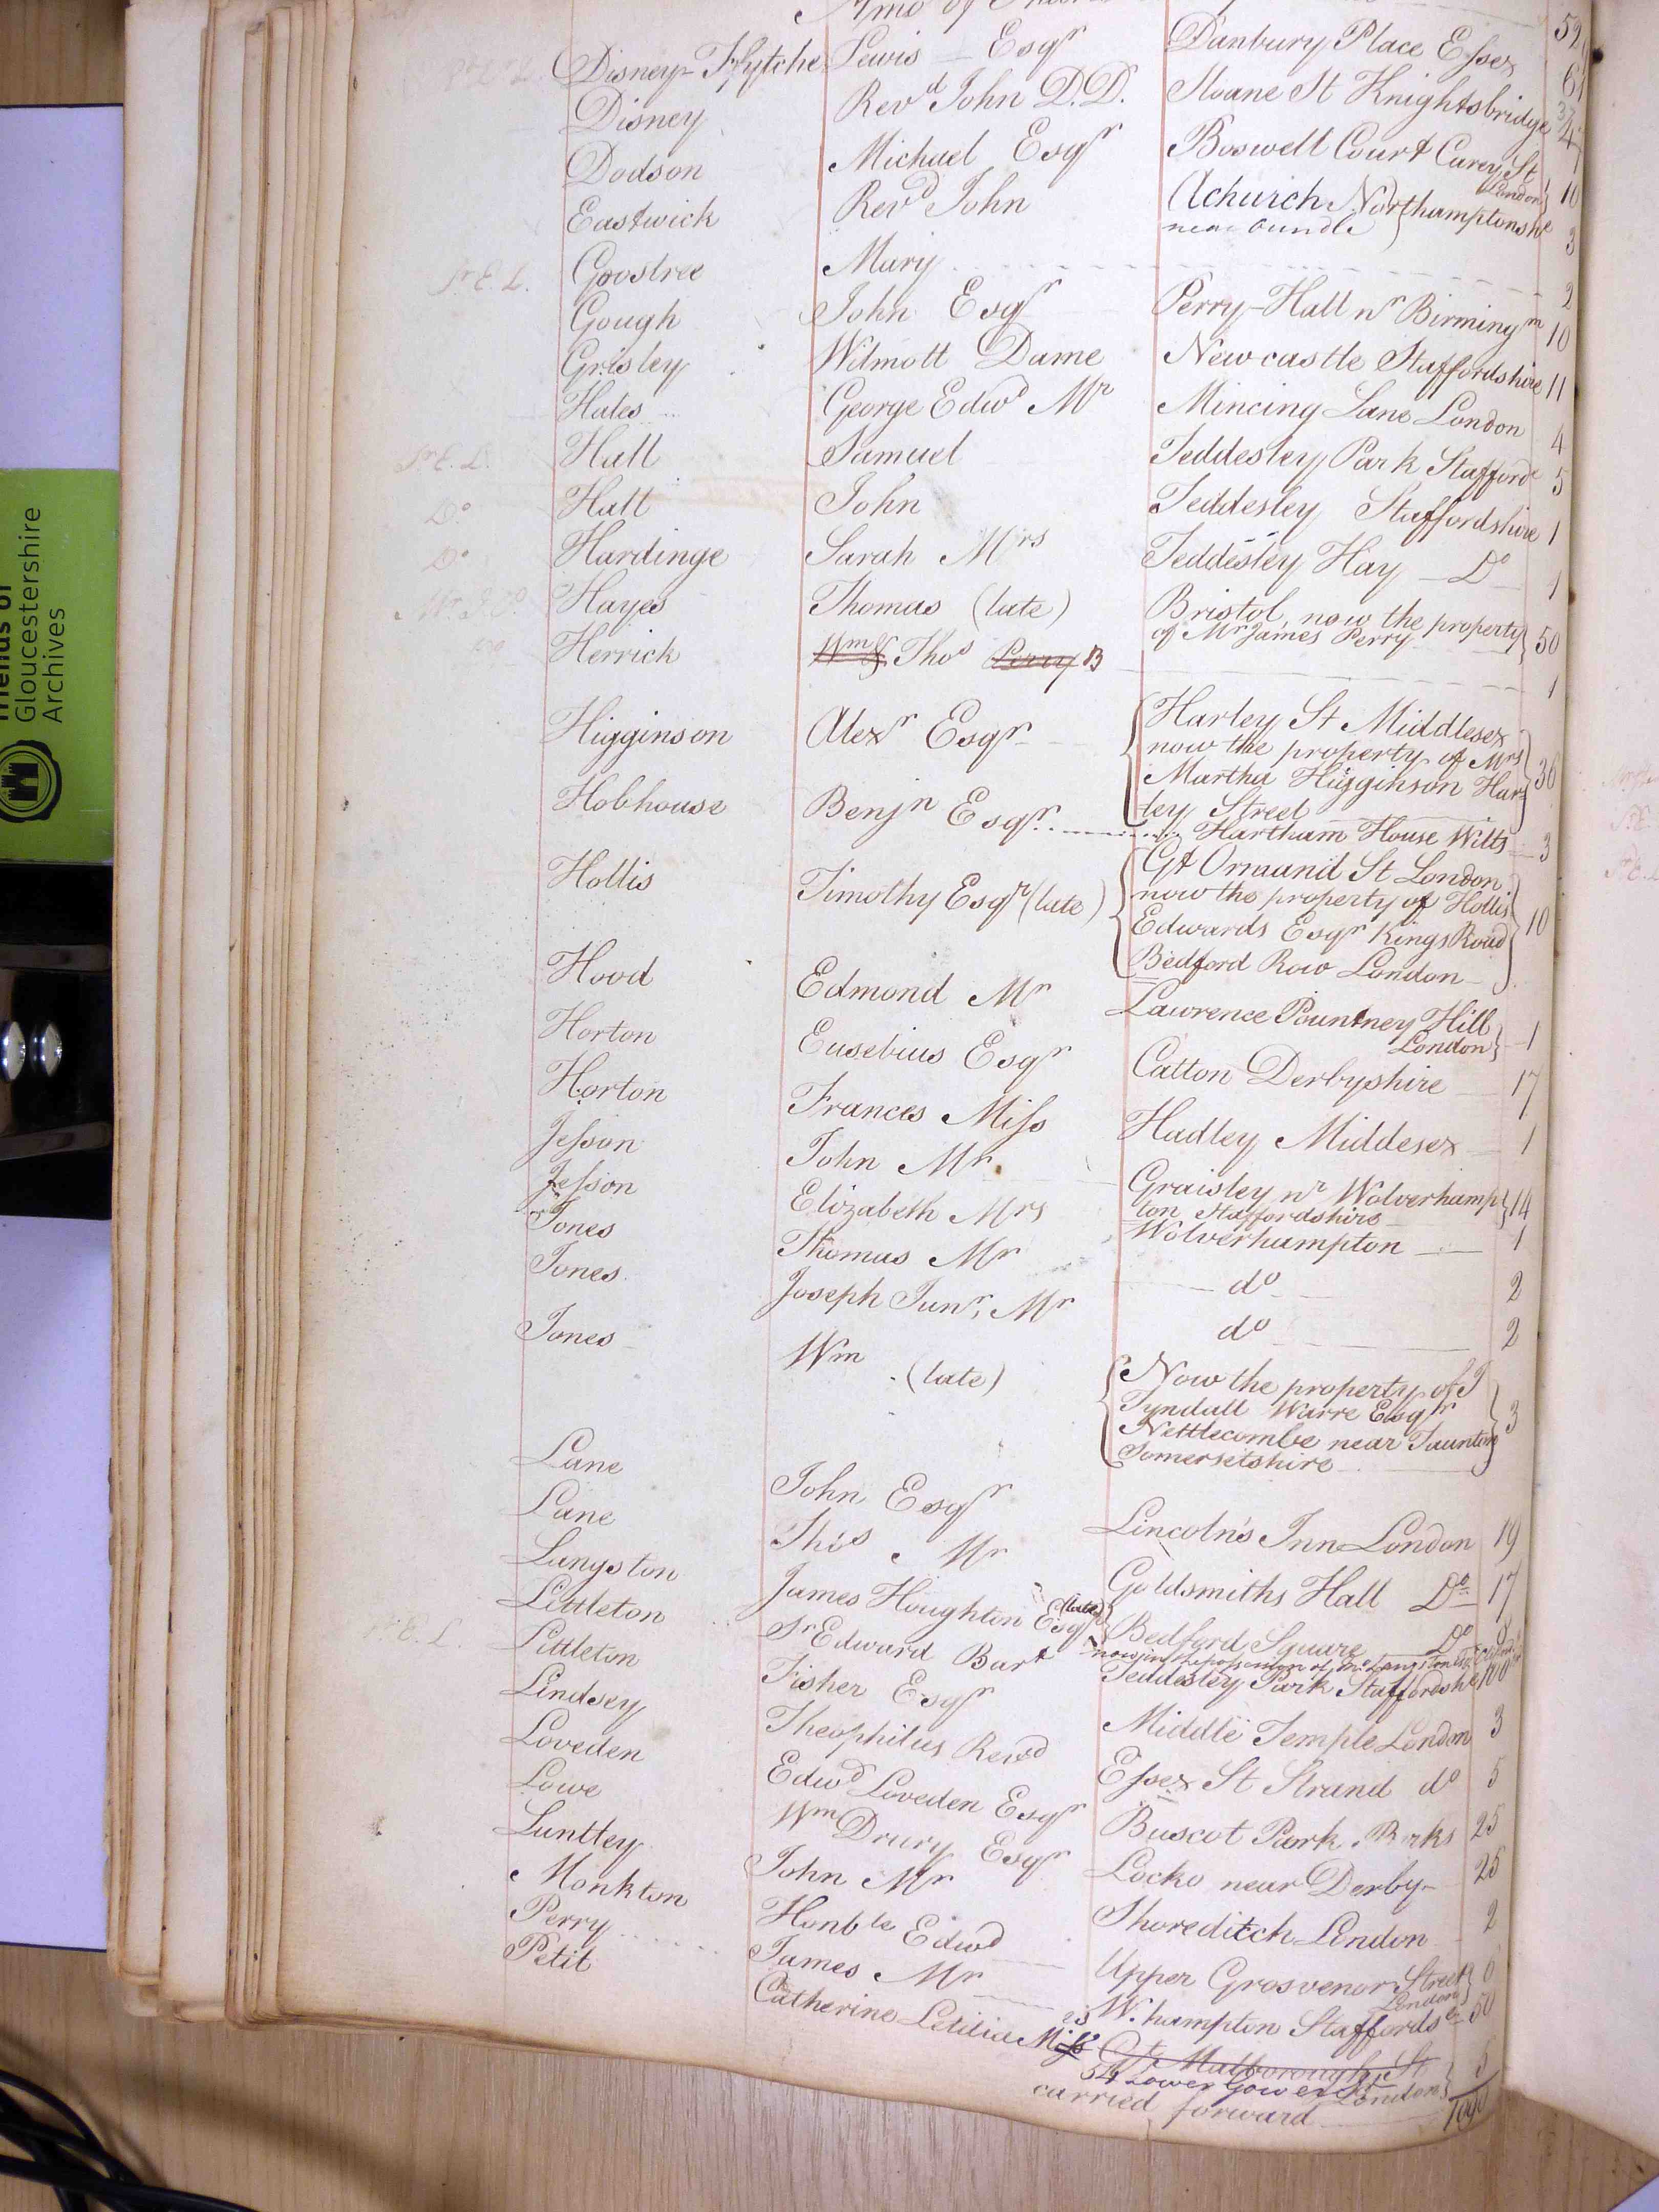 Disney-Ffytche Lewis Esqr Danbury Place Essex 6
Disney Revd John D.D. Sloane St Knightsbridge
Dodson Michael Esqr Boswell Court Carey St London 10
Eastwick Revd John Achurch Northamptonshe near Oundle 3
Sr E. L. Goostree Mary 2
Gough John Esqr Perry-Hall nr Birmingm 10
Grisley Wilmott Dame Newcastle Staffordshire 11
Hales George Edwd Mr Mincing Lane London 4
Sr E. L. Hall Samuel Teddesley Park Stafforde 5
Do Hall John Teddesley Staffordshire 1
Do Hardinge Sarah Mrs Teddesley Hay Do 1
Hayes Thomas (late) Bristol, now the property
of Mr James Perry 50
Do Herrick Wm & Thos Perry B 1
Higginson Alexr Esqr Harley St Middlesex
now the property of Mrs
Martha Higginson Har-
ley Street 36
Hobhouse Benjn Esqr Hartham House Wilts 3
Hollis Timothy Esqr (late) Gt Ormand St London
now the property of Hollis
Edwards Esqr Kings Road
Bedford Row London 10
Hood Edmond Mr Lawrence Pountney Hill
London 1
Horton Eusebius Esqr Catton Derbyshire 17
Horton Frances Miss Hadley Middesex 1
Jesson John Mr Graisley nr Wolverhamp
ton Staffordshire 14
Jesson Elizabeth Mrs Wolverhampton 1
Jones Thomas Mr do 2
Jones Joseph Junr, Mr do 2
Jones Wm (late) Now the property of J
Tyndall Warre Esqr
Nettlecombe near Taunton
Somersetshire 3
Lane John Esqr Lincoln's Inn London 19
Lane Thos Mr Goldsmiths Hall Do 17
Langston James Houghton Esqr (late) Bedford Square Do 8
now in the possession of
Littleton Sr Edward Bart Teddesley Park Staffordshe 100
Sr E. L. Littleton Fisher Esqr Middle Temple London 3
Lindsey Theophilus Revd Essex St Strand do 5
Loveden Edwd Loveden Esqr Buscot Park Berks 25
Lowe Wm Drury Esqr Locko near Derby 25
Luntley John Mr Shoreditch London 2
Monkton Honble Edwd Upper Grosvenor Street
London
Perry James Mr W.hampton Staffords 50
Petit Catherine Letitia Miss Gt Malborough St
54 Lower Gower St London 5
carried forward
Friends of
Gloucestershire
Archives